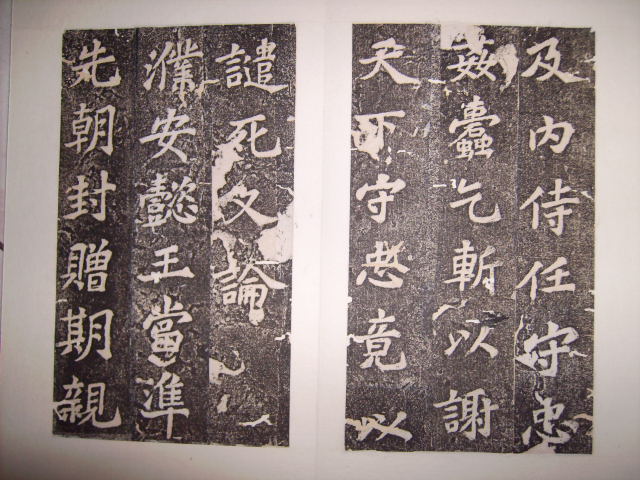 及内侍任守忠
姦蠹乞斬以謝
天下守忠竟以
譴死又論
濮安懿王當準
先朝封贈期親